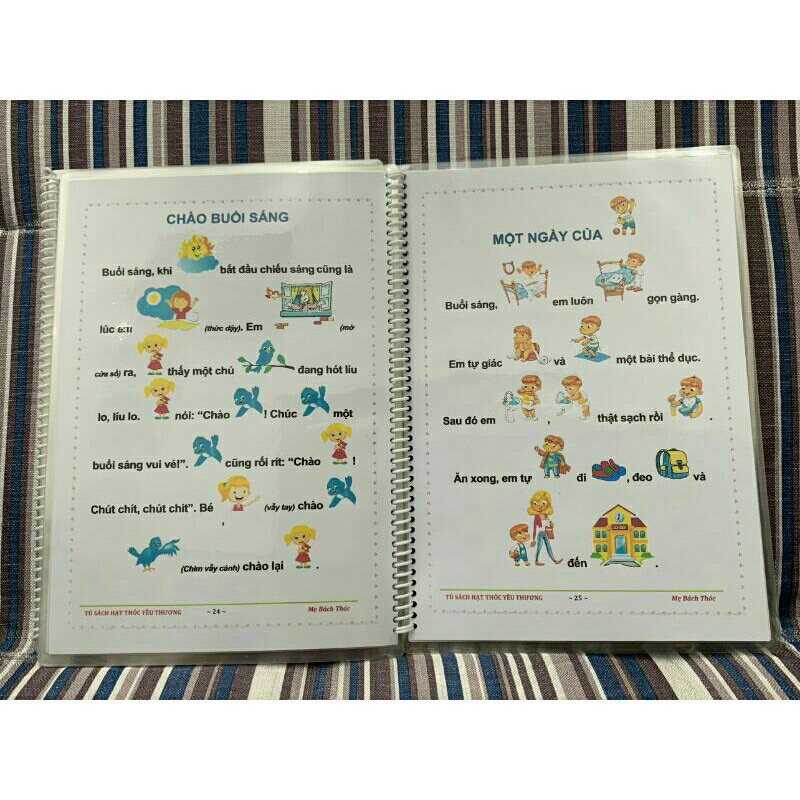 CHÀO BUỔI SÁNG
Buổi sáng, khi bắt đầu chiếu sáng cũng là
lúc em (thức dậy). Em (mở
cửa sổ) ra, thấy một chú đang hót líu
lo, líu lo. nói: “Chào ! Chúc một
buổi sáng vui vẻ!”. cũng rối rít: “Chào !
Chút chít, chút chít”. Bé , (vẫy tay) chào
(Chim vẫy cánh) chào lại .
TỦ SÁCH HẠT THÓC YÊU THƯƠNG ~ 24 ~ Mẹ Bách Thóc
MỘT NGÀY CỦA
Buổi sáng, em luôn gọn gàng.
Em tự giác và một bài thể dục.
Sau đó em , thật sạch rồi .
Ăn xong, em tự đi , đeo và
đến .
TỦ SÁCH HẠT THÓC YÊU THƯƠNG ~ 25 ~ Mẹ Bách Thóc